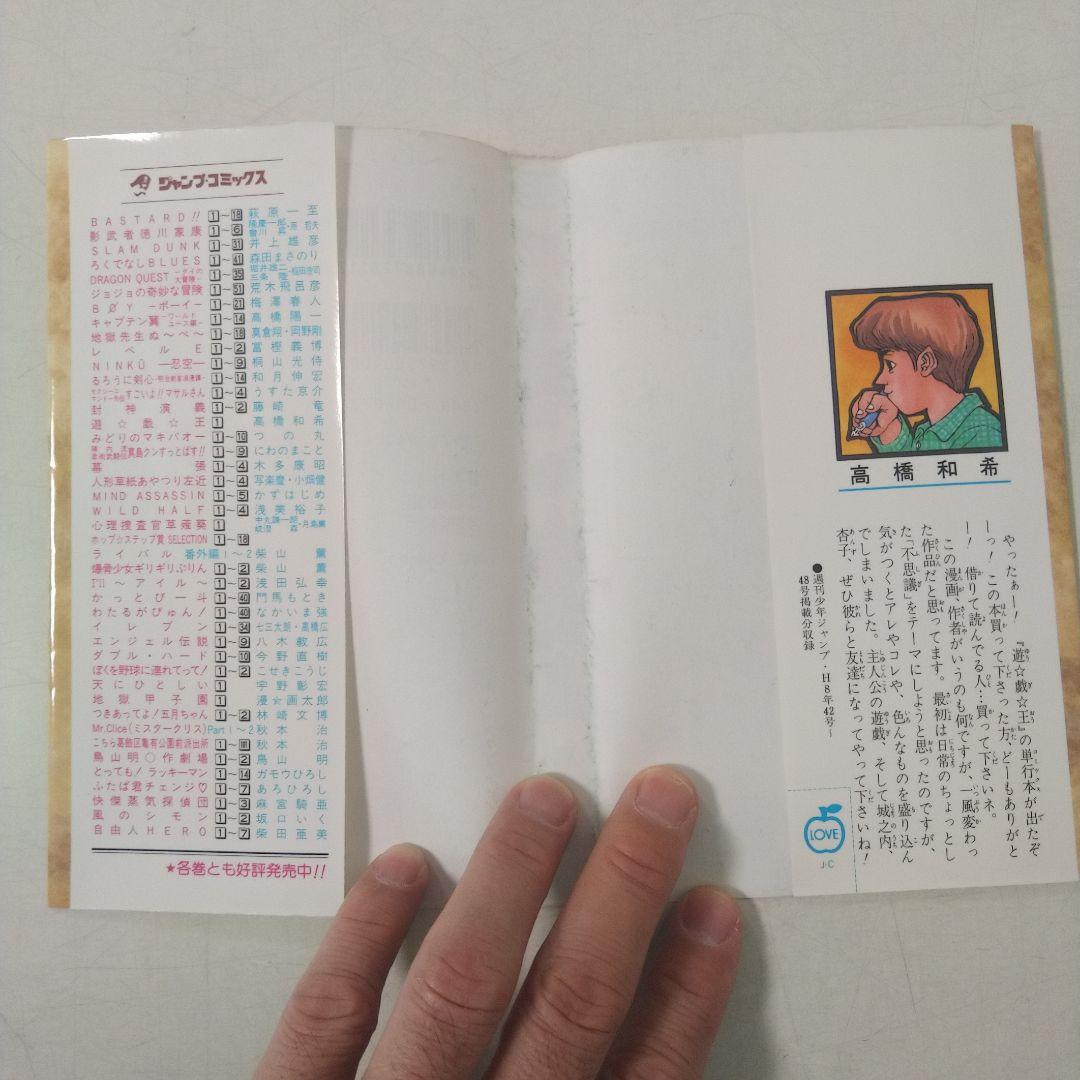 ジャンプ・コミックス
BASTARD!! 1〜18 萩原一至
影武者徳川家康 1〜6 隆慶一郎・會川昇・原哲夫
SLAM DUNK 1〜31 井上雄彦
ろくでなしBLUES 1〜41 森田まさのり
DRAGON QUEST －ダイの大冒険－ 1〜35 堀井雄二・三条陸・稲田浩司
ジョジョの奇妙な冒険 1〜51 荒木飛呂彦
BØY －ボーイ－ 1〜21 梅澤春人
キャプテン翼 －ワールドユース編－ 1〜14 高橋陽一
地獄先生ぬ〜べ〜 1〜18 真倉翔・岡野剛
レベルE 1〜2 冨樫義博
NINKŪ —忍空— 1〜9 桐山光侍
るろうに剣心 -明治剣客浪漫譚- 1〜14 和月伸宏
セクシーコマンドー外伝 すごいよ!!マサルさん 1〜4 うすた京介
封神演義 1〜2 藤崎竜
遊☆戯☆王 1 高橋和希
みどりのマキバオー 1〜10 つの丸
陣内流柔術武闘伝 真島クンすっとばす!! 1〜9 にわのまこと
幕張 1〜4 木多康昭
人形草紙あやつり左近 1〜4 写楽麿・小畑健
MIND ASSASSIN 1〜5 かずはじめ
WILD HALF 1〜4 浅美裕子
心理捜査官草薙葵 1 中丸謙一朗・月島薫
ホップ☆ステップ賞 SELECTION 1〜18
ライバル 番外編1〜2 柴山薫
爆骨少女ギリギリぷりん 1〜2 柴山薫
I'll 〜アイル〜 1〜2 浅田弘幸
かっとび一斗 1〜40 門馬もとき
わたるがぴゅん! 1〜40 なかいま強
イレブン 1〜34 七三太朗・高橋広
エンジェル伝説 1〜9 八木教広
ダブル・ハード 1〜10 今野直樹
ぼくを野球に連れてって! 1〜2 こせきこうじ
天にひとしい 1 宇野彰宏
地獄甲子園 1 漫☆画太郎
つきあってよ!五月ちゃん 1〜2 林崎文博
Mr.Clice(ミスタークリス) Part1〜2 秋本治
こちら葛飾区亀有公園前派出所 秋本治
鳥山明○作劇場 1〜2 鳥山明
とっても!ラッキーマン 1〜14 ガモウひろし
ふたば君チェンジ♡ 1〜7 あろひろし
快傑蒸気探偵団 1〜3 麻宮騎亜
風のシモン 1〜2 坂口いく
自由人HERO 1〜7 柴田亜美
★各巻とも好評発売中!!
高橋和希
やったぁー! 『遊☆戯☆王』の単行本が出たぞ
ーっ! この本買って下さった方、どーもありがと
ー! 借りて読んでる人…買って下さいネ。
この漫画、作者がいうのも何ですが、一風変わっ
た作品だと思ってます。最初は日常のちょっとし
た「不思議」をテーマにしようと思ったのですが、
気がつくとアレやコレや、色んなものを盛り込ん
でしまいました。主人公の遊戯、そして城之内、
杏子、ぜひ彼らと友達になってやって下さいね!
●週刊少年ジャンプ・H8年42号〜
48号掲載分収録
LOVE
J・C